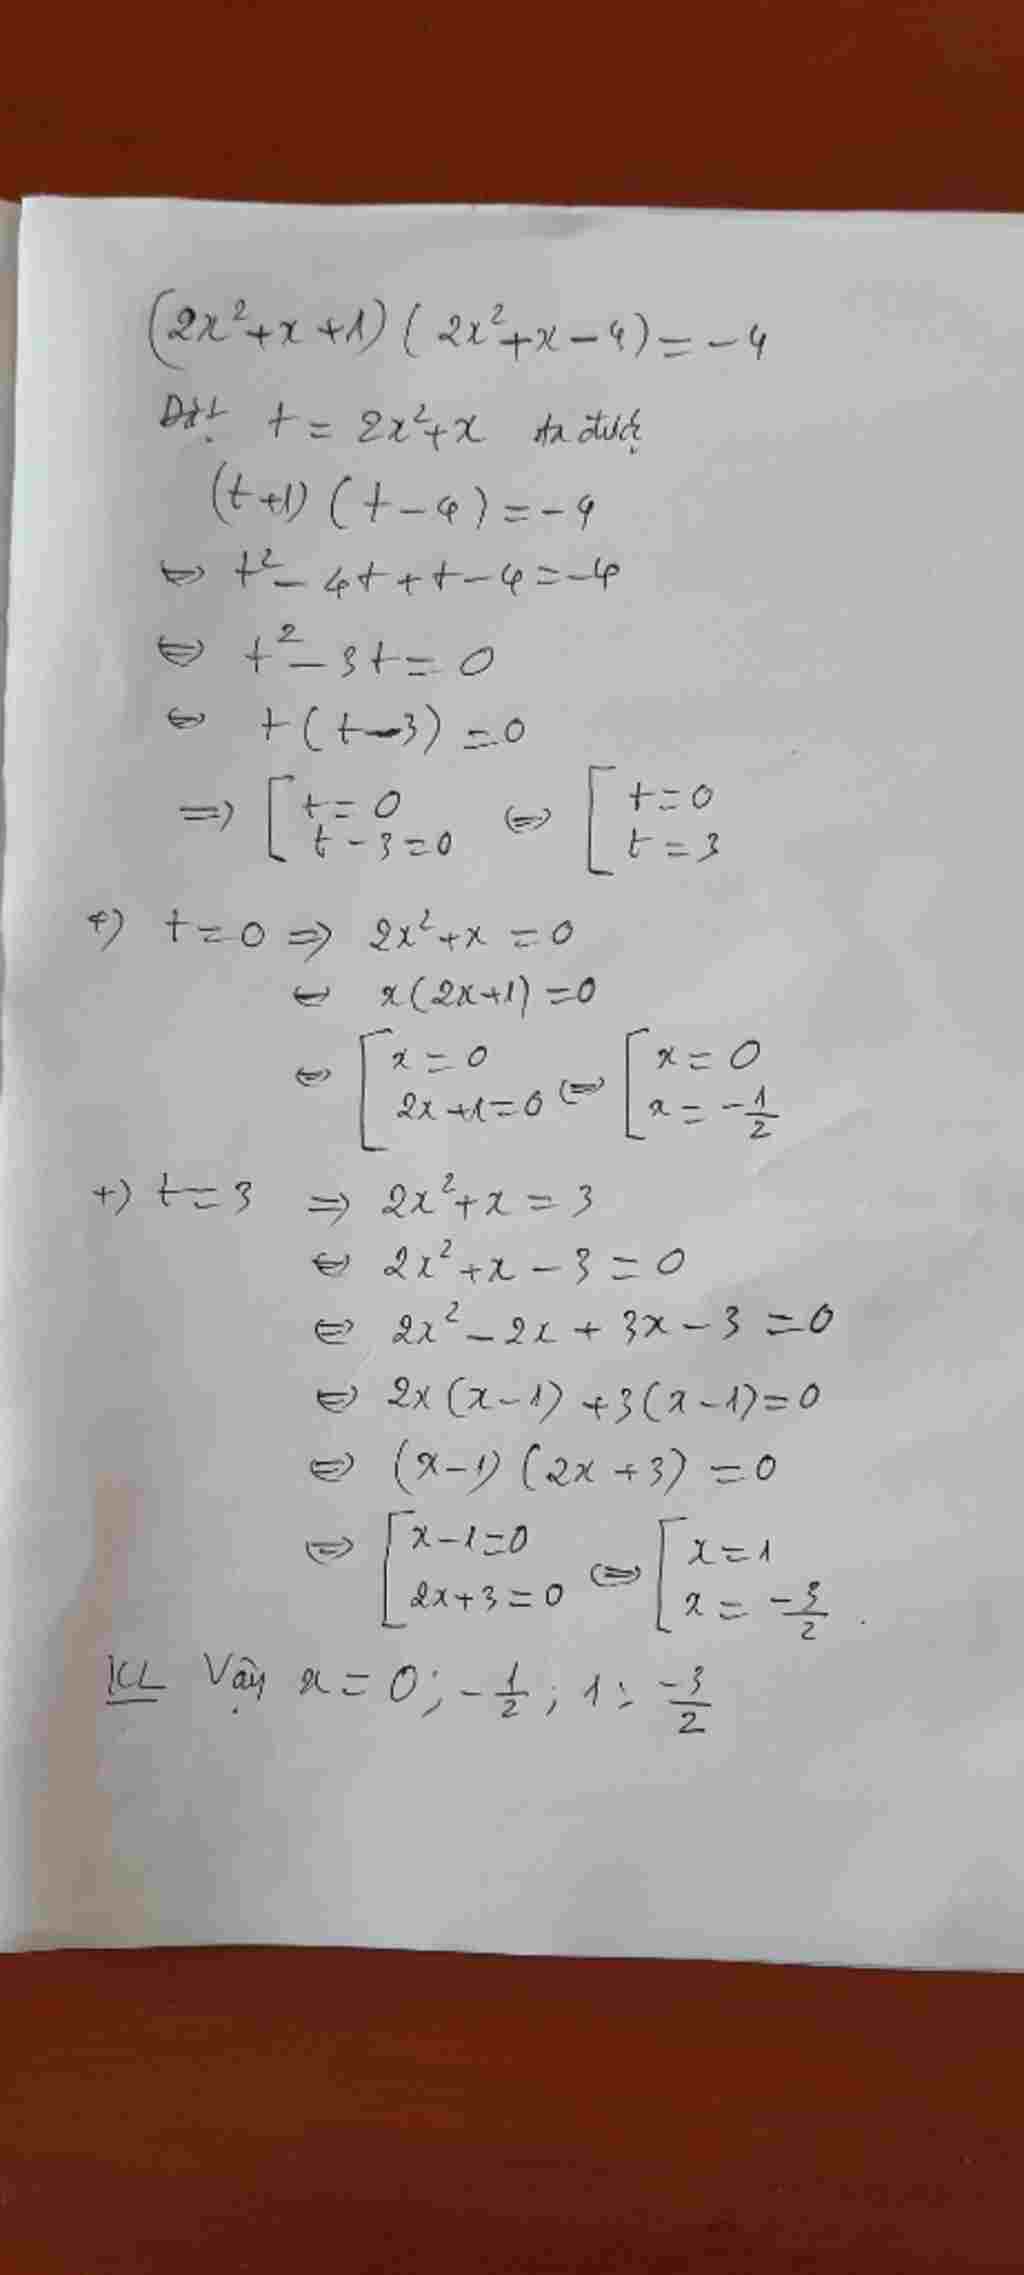 (2x²+x+1)(2x²+x-4)=-4
Đặt t = 2x²+x ta được
(t+1)(t-4)=-4
⇔ t²-4t+t-4=-4
⇔ t²-3t=0
⇔ t(t-3)=0
⇒ [t=0 ⇔ [t=0
t-3=0 t=3
+) t=0 ⇒ 2x²+x=0
⇔ x(2x+1)=0
⇔ [x=0 ⇔ [x=0
2x+1=0 x=-1/2
+) t=3 ⇒ 2x²+x=3
⇔ 2x²+x-3=0
⇔ 2x²-2x+3x-3=0
⇔ 2x(x-1)+3(x-1)=0
⇔ (x-1)(2x+3)=0
⇔ [x-1=0 ⇔ [x=1
2x+3=0 x=-3/2.
KL Vậy x=0; -1/2; 1; -3/2